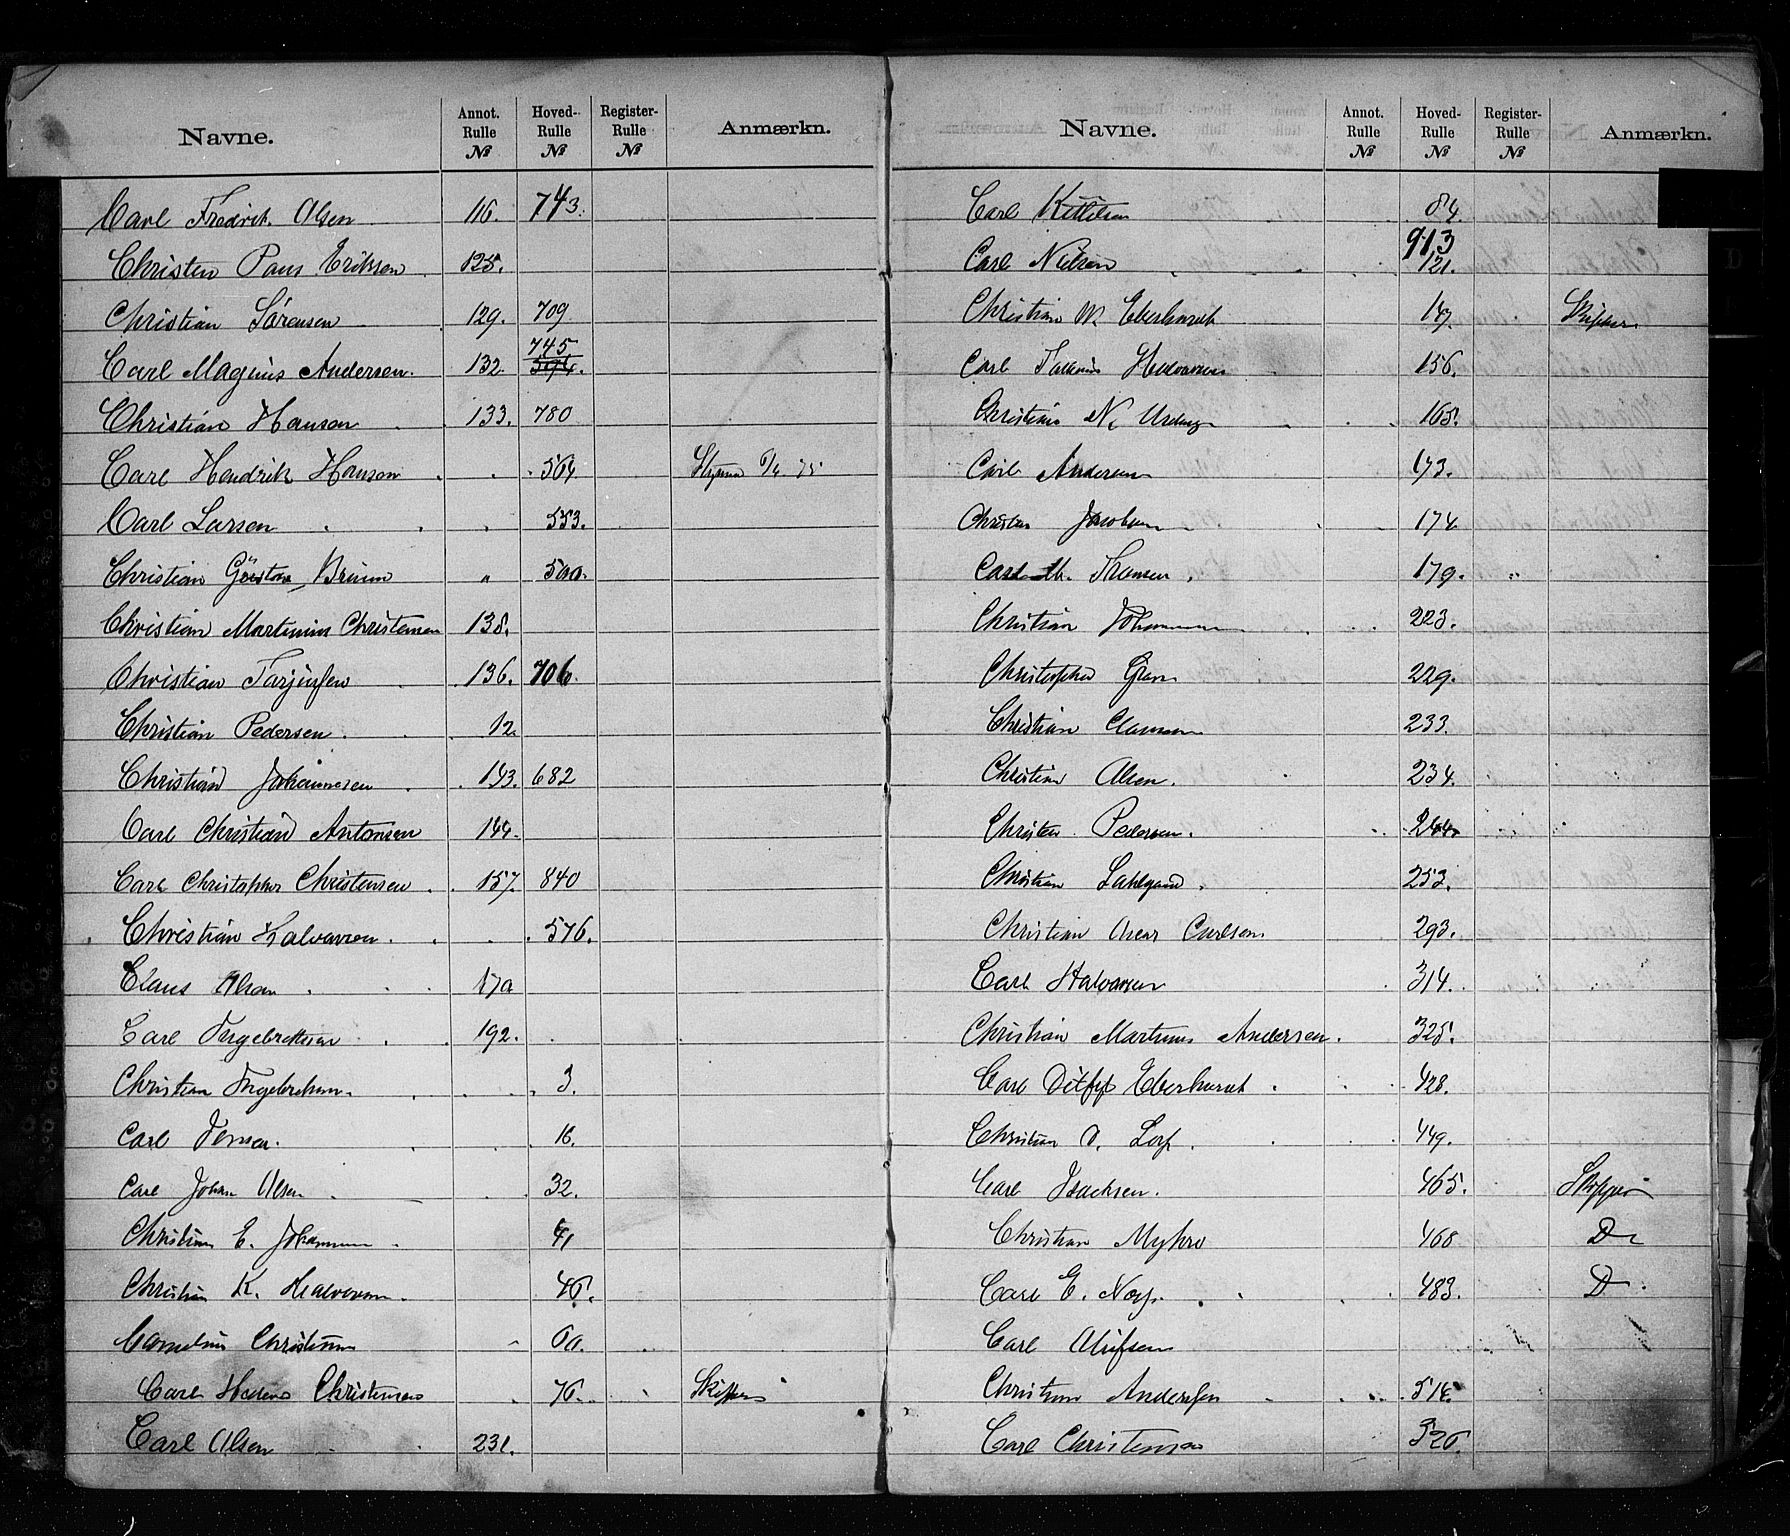 Navne. Annot. Rulle № Hoved-Rulle № Register-Rulle № Anmærkn.
Carl Fredrik Olsen 116 743.
Christen Paus Eriksen 125.
Christian Sørensen 129. 709
745
Carl Magnus Andersen. 132 594.
Christian Hansen 133. 780
Carl Hendrik Hansen 564.
Carl Larsen 553.
Christian Gustav Bruun " 500.
Christian Martinius Christensen 138.
Christian Tarjusen 136. 706.
Christian Pedersen. 12
Christian Johannesen 143. 682
Carl Christian Antonsen 144.
Carl Christopher Christensen 157. 840
Christian Halvorsen. 576.
Claus Olsen 170
Carl Ingebretsen 192.
Christian Ingebretsen. 3.
Carl Jensen. 16.
Carl Johan Olsen 32.
Christian E. Johannesen 41
Christian K. Halvorsen. 46.
Cornelius Christensen 60.
Carl Christensen 76. Skipper
Carl Olsen 231.
Navne. Annot. Rulle № Hoved-Rulle № Register-Rulle № Anmærkn.
Carl Kittilsen 84.
913
Carl Nilsen 121.
Christian W. Eberhardt 147. Skipper
Carl Halvorsen 156.
Christian N. 165.
Carl Andersen 173.
Christen Jacobsen 174
Carl M. Thomsen. 179. "
Christian Johannesen 223.
Christopher Gran 229.
Christian Clausen 233.
Christian Olsen. 234.
Christen Pedersen. 244.
Christian 253.
Christian Oscar Carlsen 293.
Carl Halvorsen 314.
Christian Martinus Andersen. 325.
Carl Ditlef Eberhardt 428.
Christian D. 449.
Carl Isachsen. 465. Skipper
Christian Myhre 468 Do
Carl E. 483. Do
Carl Olufsen
Christian Andersen 514.
Carl Christensen 526.